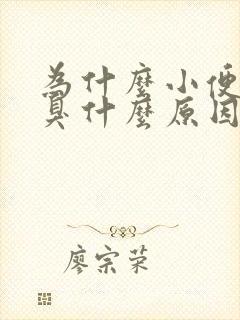 為什麼小便
臭什麼原因
廖宗荣